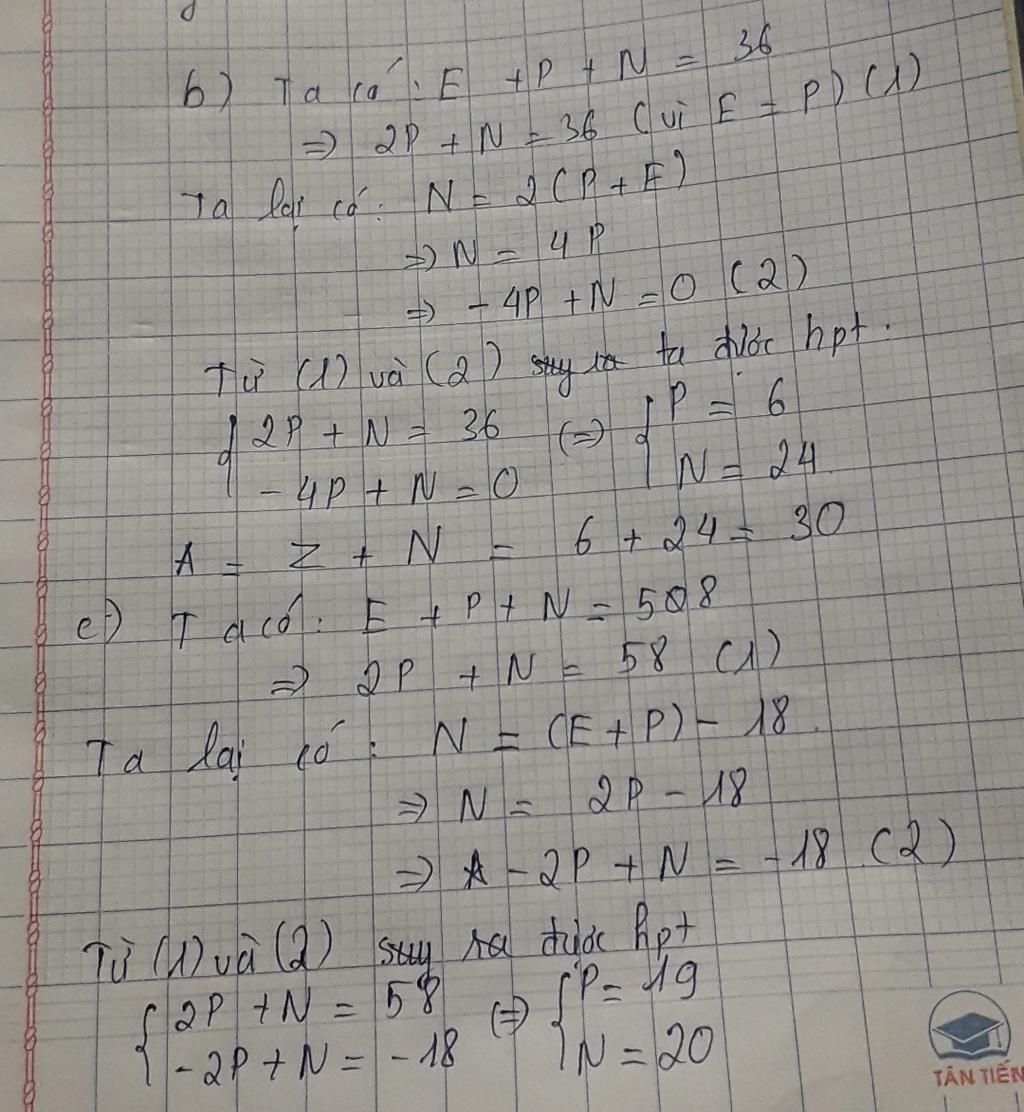 b) Ta có: E + P + N = 36
=> 2P + N = 36 (vì E = P) (1)
Ta lại có: N = 2(P + E)
=> N = 4P
=> -4P + N = 0 (2)
Từ (1) và (2) suy ra ta được hpt.
{2P + N = 36 (=) {P = 6
-4P + N = 0 N = 24
A = Z + N = 6 + 24 = 30
c) Ta có: E + P + N = 508
=> 2P + N = 58 (1)
Ta lại có: N = (E + P) - 18
=> N = 2P - 18
=> -2P + N = -18 (2)
Từ (1) và (2) suy ra được hpt
{2P + N = 58 (=) {P = 19
-2P + N = -18 N = 20
TÂN TIẾN